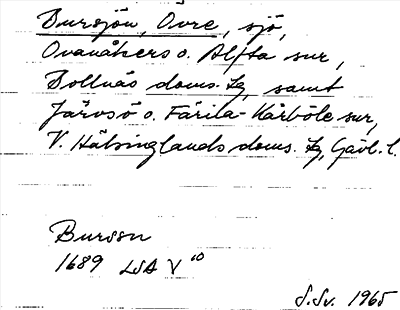 Bursjön, Övre, sjö,
Ovanåkers o. Alfta snr,
Bollnäs doms. tg, samt
Järvsö o. Färila-Kårböle snr,
V. Hälsinglands doms. tg, Gävl. l.
Burssn
1689 LSA V¹⁰
S. Sv. 1965